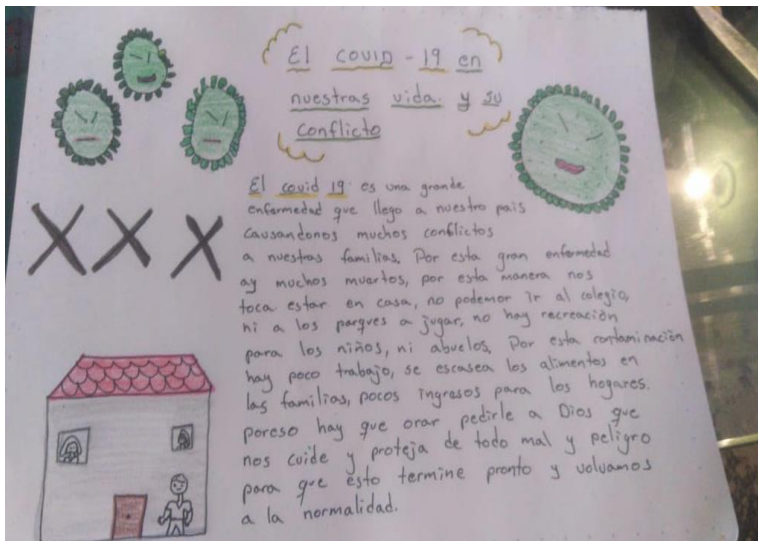 El COVID-19 en
nuestras vida. y su
Conflicto
El covid 19 es una grande
enfermedad que llego a nuestro pais
Causandonos muchos conflictos
a nuestras familias. Por esta gran enfermedad
ay muchos muertos, por esta manera nos
toca estar en casa, no podemor ir al colegio,
ni a los parques a jugar, no hay recreación
para los niños, ni abuelos. Por esta contaminación
hay poco trabajo, se escasea los alimentos en
las familias, pocos ingresos para los hogares.
poreso hay que orar pedirle a Dios que
nos cuide y proteja de todo mal y peligro
para que esto termine pronto y volvamos
a la normalidad.